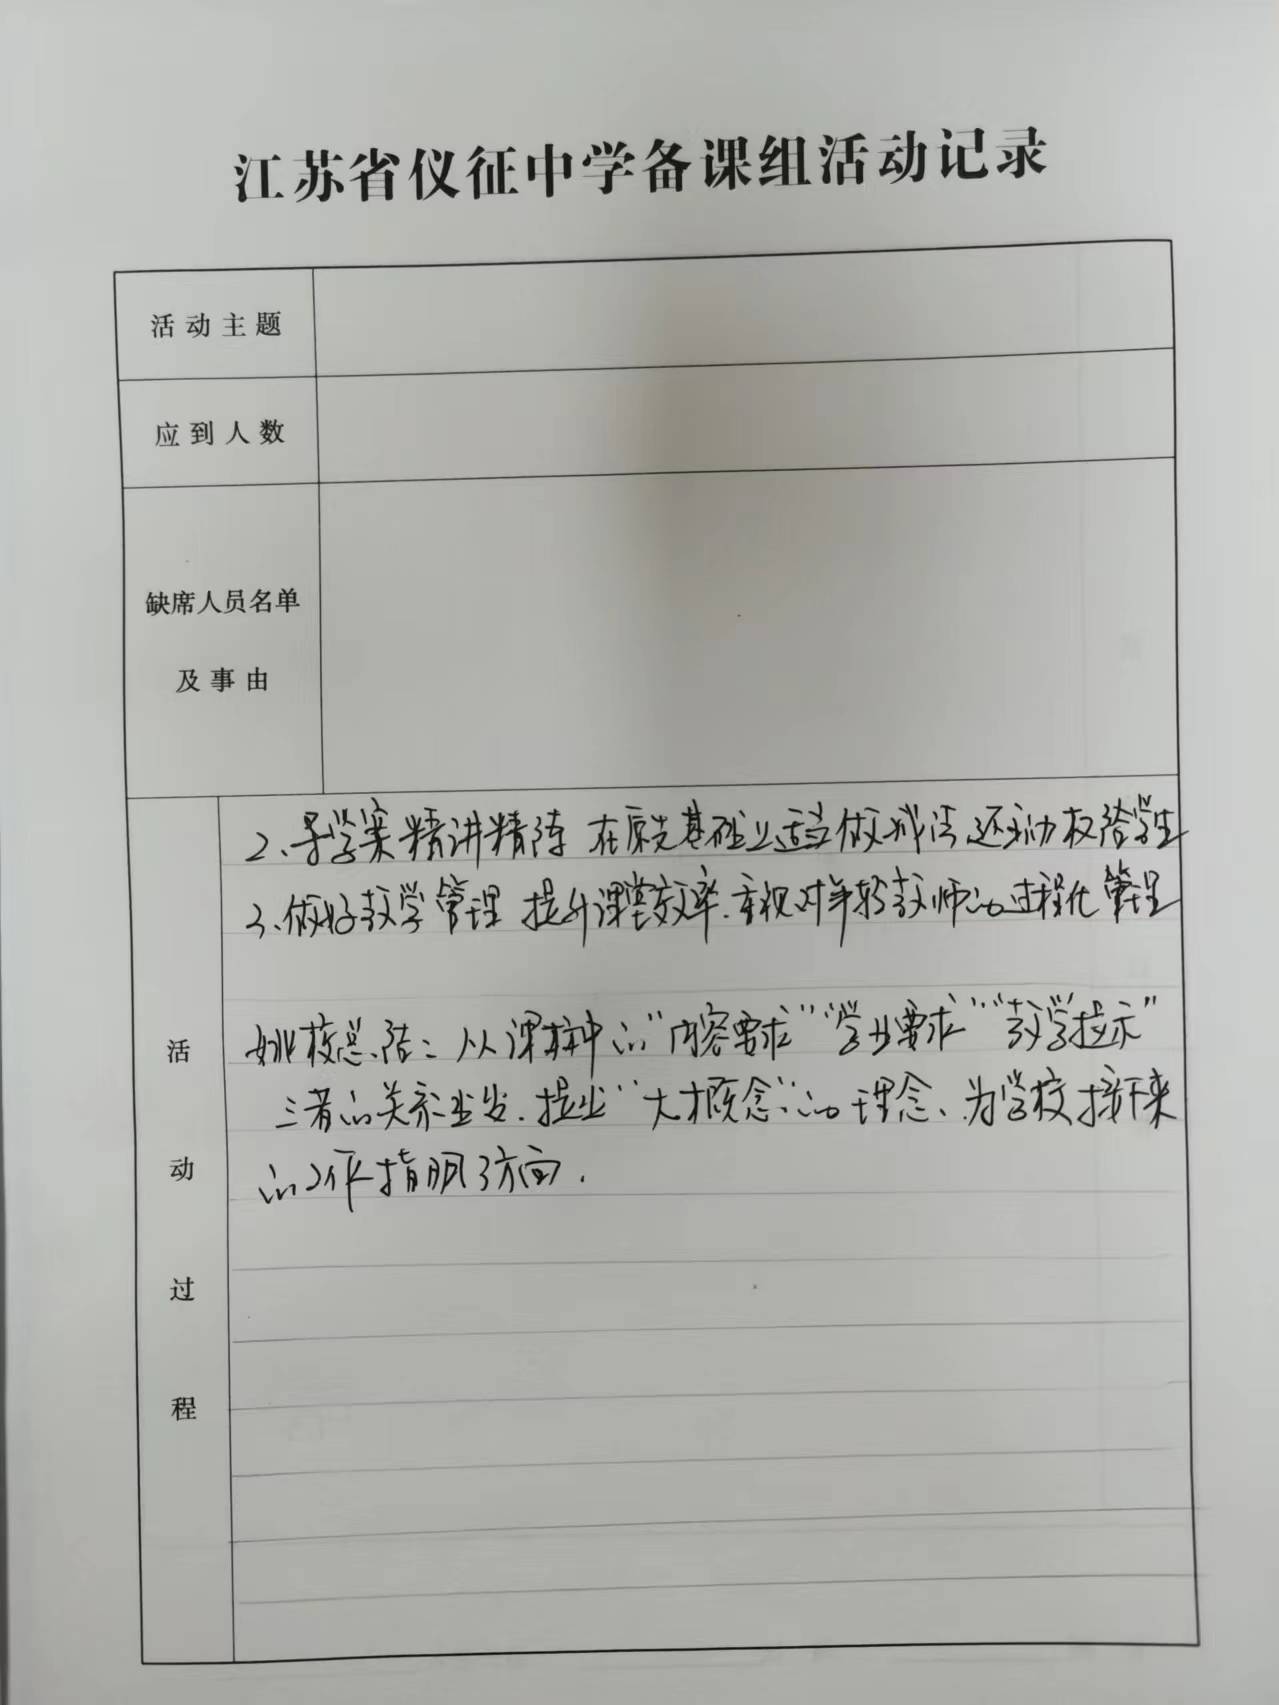 江苏省仪征中学备课组活动记录
活动主题
应到人数
缺席人员名单
及事由
活动过程
2、导学案精讲精练 在原先基础上适当做减法 还主动权给学生
3、做好教学管理 提升课堂效率.重视对年轻教师的过程化管理
姚校总结:从课标中的“内容要求”“学业要求”“教学提示”
三者的关系出发.提出“大概念”的理念、为学校接下来
的工作指明了方向.